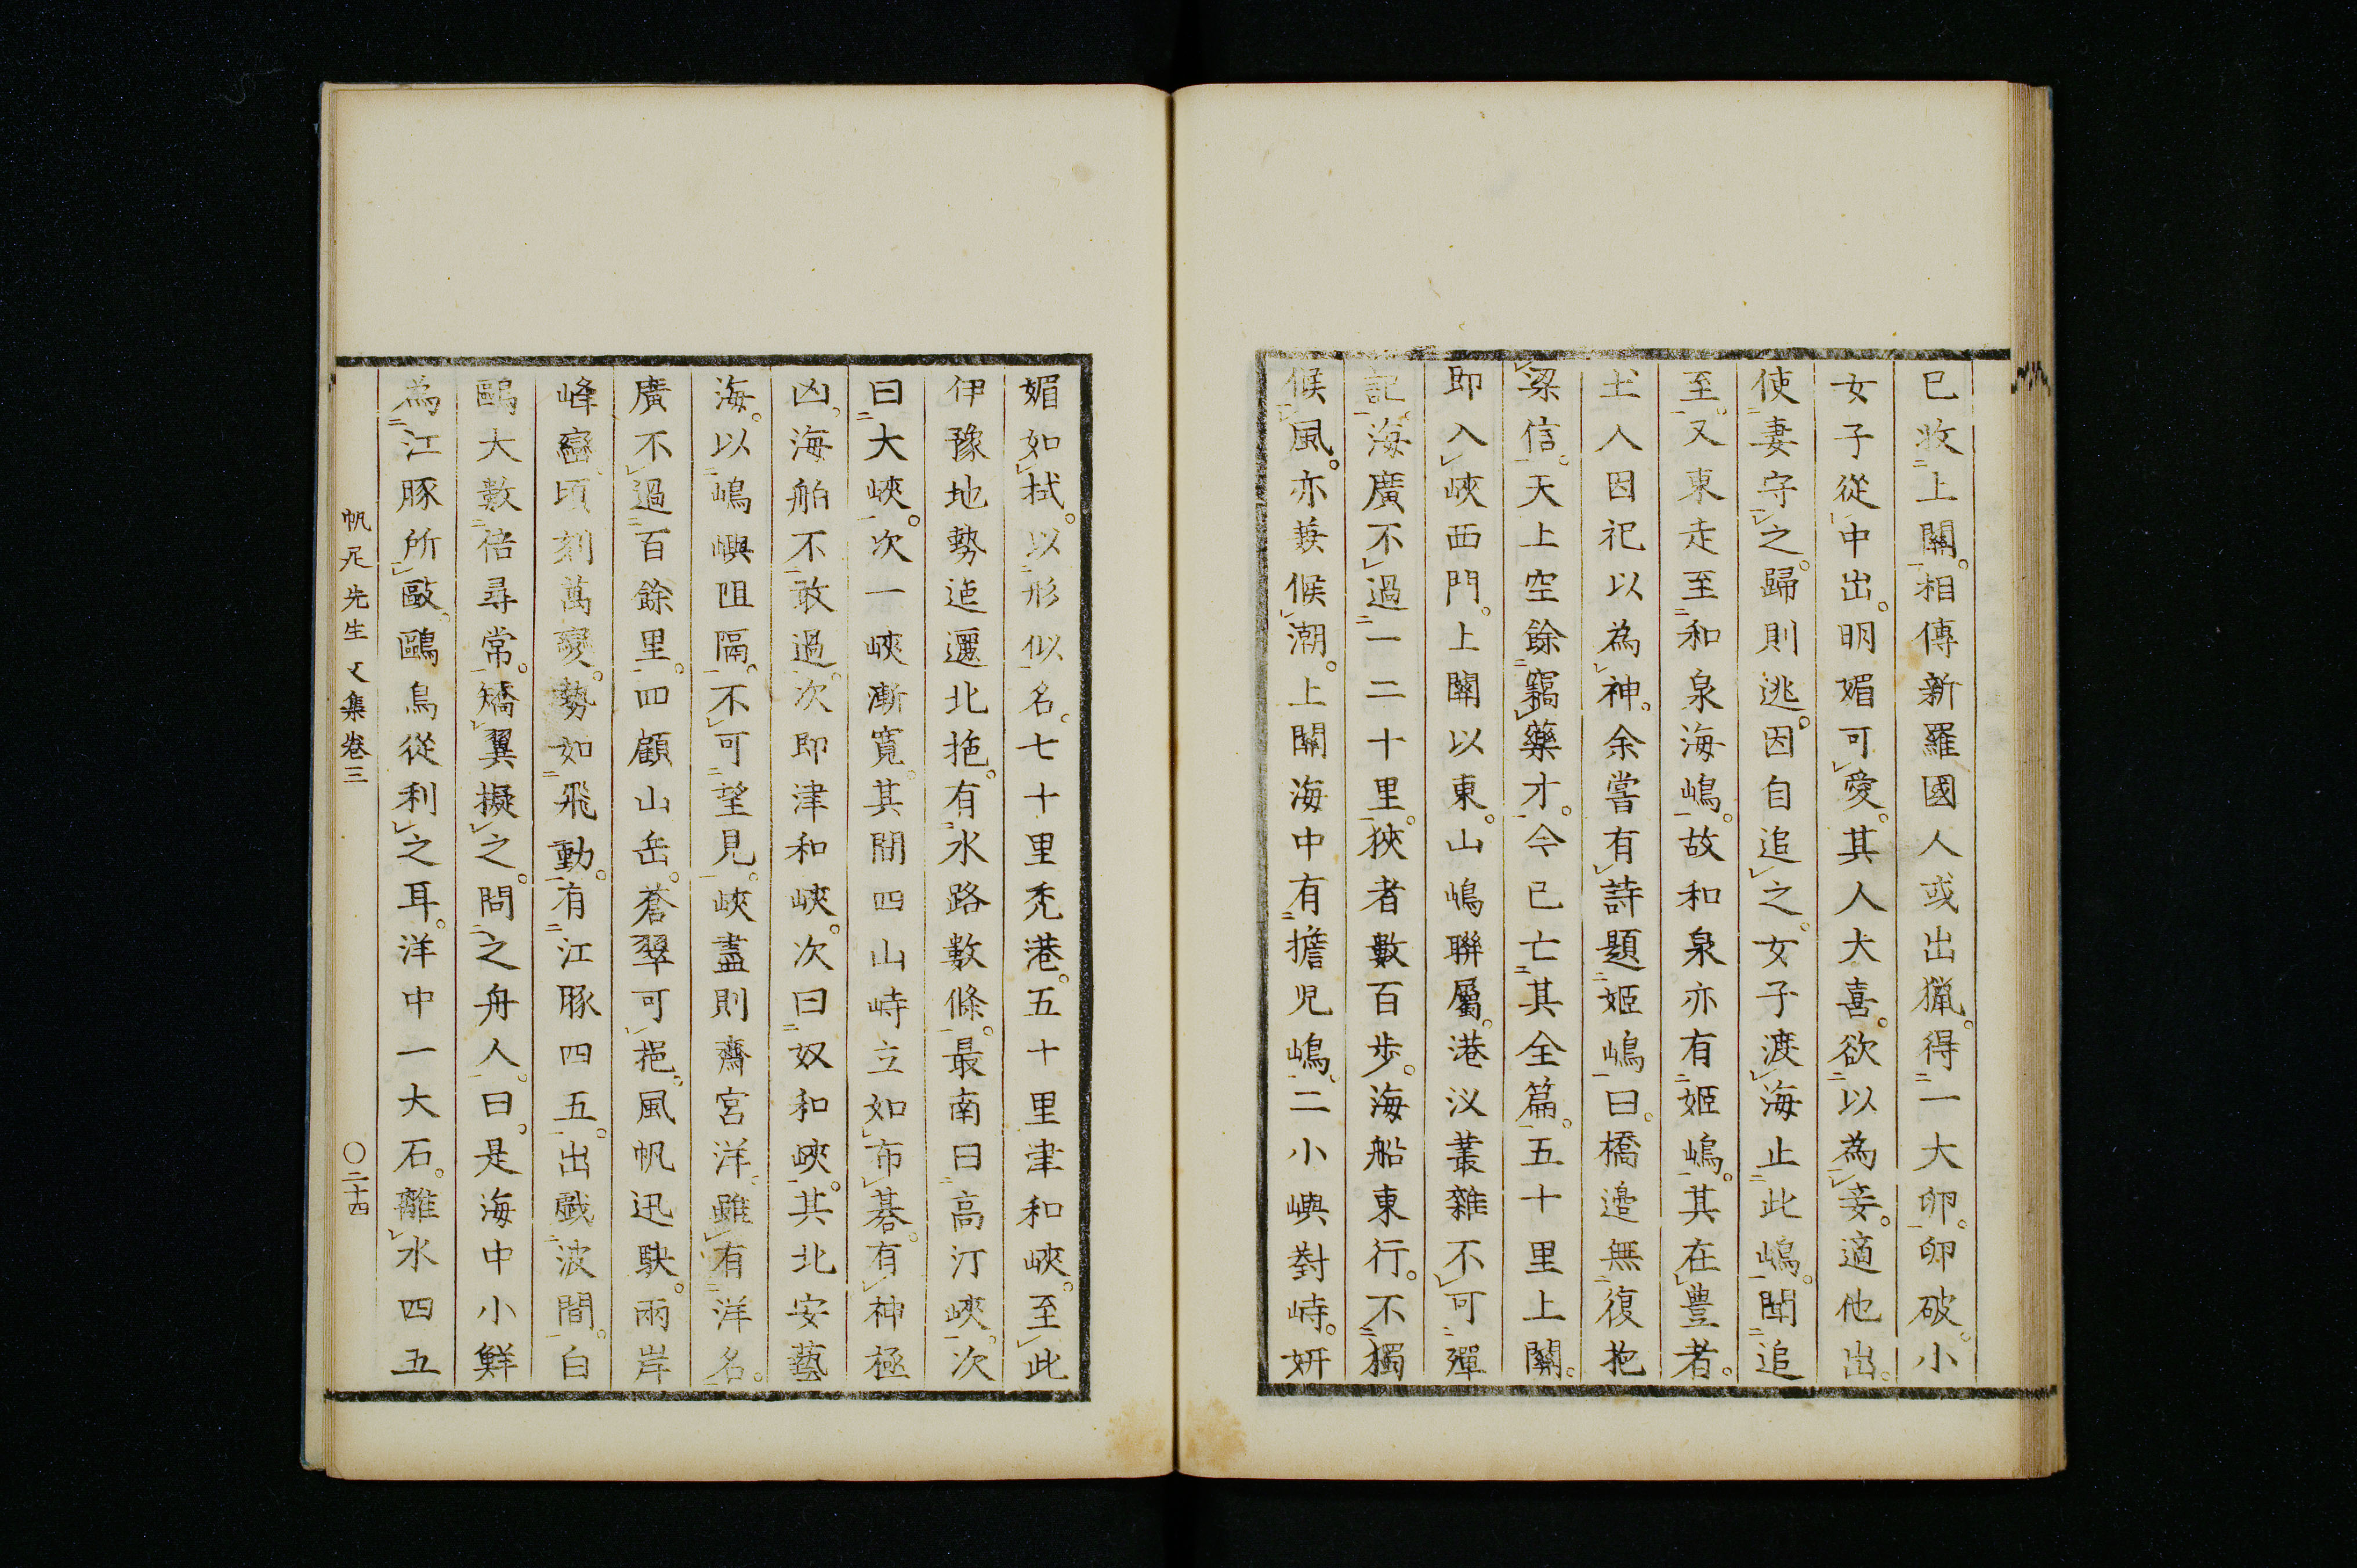 已牧上關。相傳新羅國人或出猟。得一大卵。卵破。小
女子從中出。明媚可愛。其人大喜。欲以為妾。適他出。
使妻守之。歸則逃。因自追之。女子渡海止此嶋。聞追
至。又東走至和泉海嶋。故和泉亦有姬嶋。其在豊者。
土人因祀以為神。余嘗有詩題姬嶋曰。橋邉無復抱
梁信。天上空餘竊藥才。今已亡其全篇。五十里上關。
即入峽西門。上關以東。山嶋聯屬。港汊叢雜不可殫
記。海廣不過一二十里。狹者數百步。海船東行。不獨
候風。亦兼候潮。上關海中有擔児嶋。二小嶼對峙。妍
媚如拭。以形似名。七十里禿港。五十里津和峽。至此
伊豫地勢迤邐北拖。有水路數條。最南曰高汀峽。次
曰大峽。次一峽漸寛。其間四山峙立如布碁。有神極
凶。海舶不敢過。次即津和峽。次曰奴和峽。其北安藝
海。以嶋嶼阻隔。不可望見。峽盡則齋宮洋。雖有洋名。
廣不過百餘里。四顧山岳。蒼翠可挹。風帆迅駃。兩岸
峰巒、頃刻萬變。勢如飛動。有江豚四五。出戲波間。白
鷗大數倍尋常。矯翼擬之。問之舟人。曰。是海中小鮮
為江豚所敺、鷗鳥從利之耳。洋中一大石。離水四五
帆足先生文集卷三
〇二十四